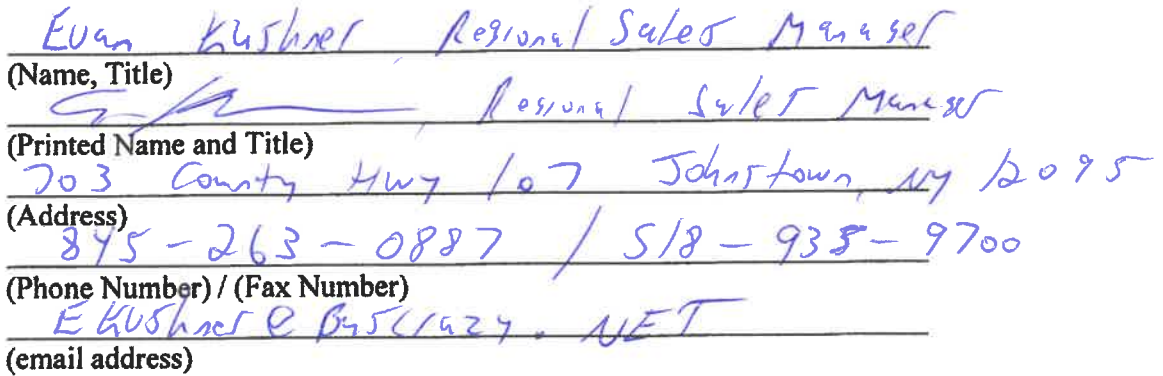 Evan Kushner Regional Sales Manager
(Name, Title)
, Regional Sales Manager
(Printed Name and Title)
703 County Hwy 107 Johnstown, NY 12095
(Address)
845-263-0887 / 518-935-9700
(Phone Number) / (Fax Number)
EKUShner@BusCrazy.NET
(email address)